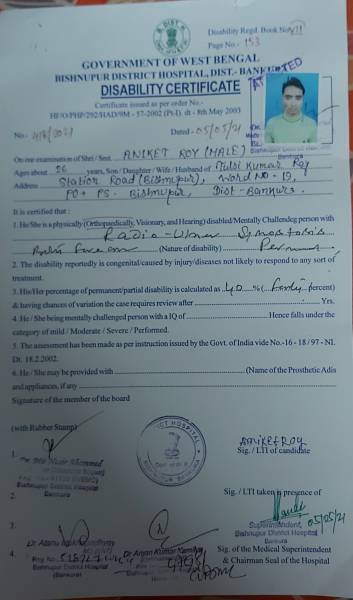 Disability Regd. Book No
Page No.- 153
GOVERNMENT OF WEST BENGAL
BISHNUPUR DISTRICT HOSPITAL, DIST.- BANKURA
DISABILITY CERTIFICATE
ATTESTED
Certificate issued as per order No.-
HF/O/PHP/292/HAD/9M - 57-2002 (Pt-I). dt - 8th May 2003
No.-
Dated - 05/05/21
On our examination of Shri / Smt. ANIKET ROY (MALE)
Ages about years, Son / Daughter / Wife / Husband of Tulsi Kumar Roy
Address Station Road (Bishnupur), Word NO - 19,
PO + PS - Bishnupur, Dist - Bankura.
It is certified that :
1. He/She is a physically (Orthopaedically, Visionary, and Hearing) disabled/Mentally Challendeg person with
Radio - Ulnar Synostosis
(Nature of disability)
2. The disability reportedly is congenital/caused by injury/diseases not likely to respond to any sort of
treatment.
3. His/Her percentage of permanent/partial disability is calculated as 40 % (Forty percent)
& having chances of variation the case requires review after Yrs.
4. He / She being mentally challenged person with a IQ of Hence falls under the
category of mild / Moderate / Severe / Performed.
5. The assessment has been made as per instruction issued by the Govt. of India vide No.-16 - 18 / 97 - NI.
Dt. 18.2.2002.
6. He / She may be provided with (Name of the Prosthetic Adis
and appliances, if any
Signature of the member of the board
(with Rubber Stamp)
Aniket Roy
Sig. / LTI of candidate
1.
Bishnupur District Hospital
Bankura
2.
Sig. / LTI taken in presence of
05/05/21
3.
Superintendent,
Bishnupur District Hospital
Bankura
4.
Bishnupur District Hospital
(Bankura)
Sig. of the Medical Superintendent
& Chairman Seal of the Hospital